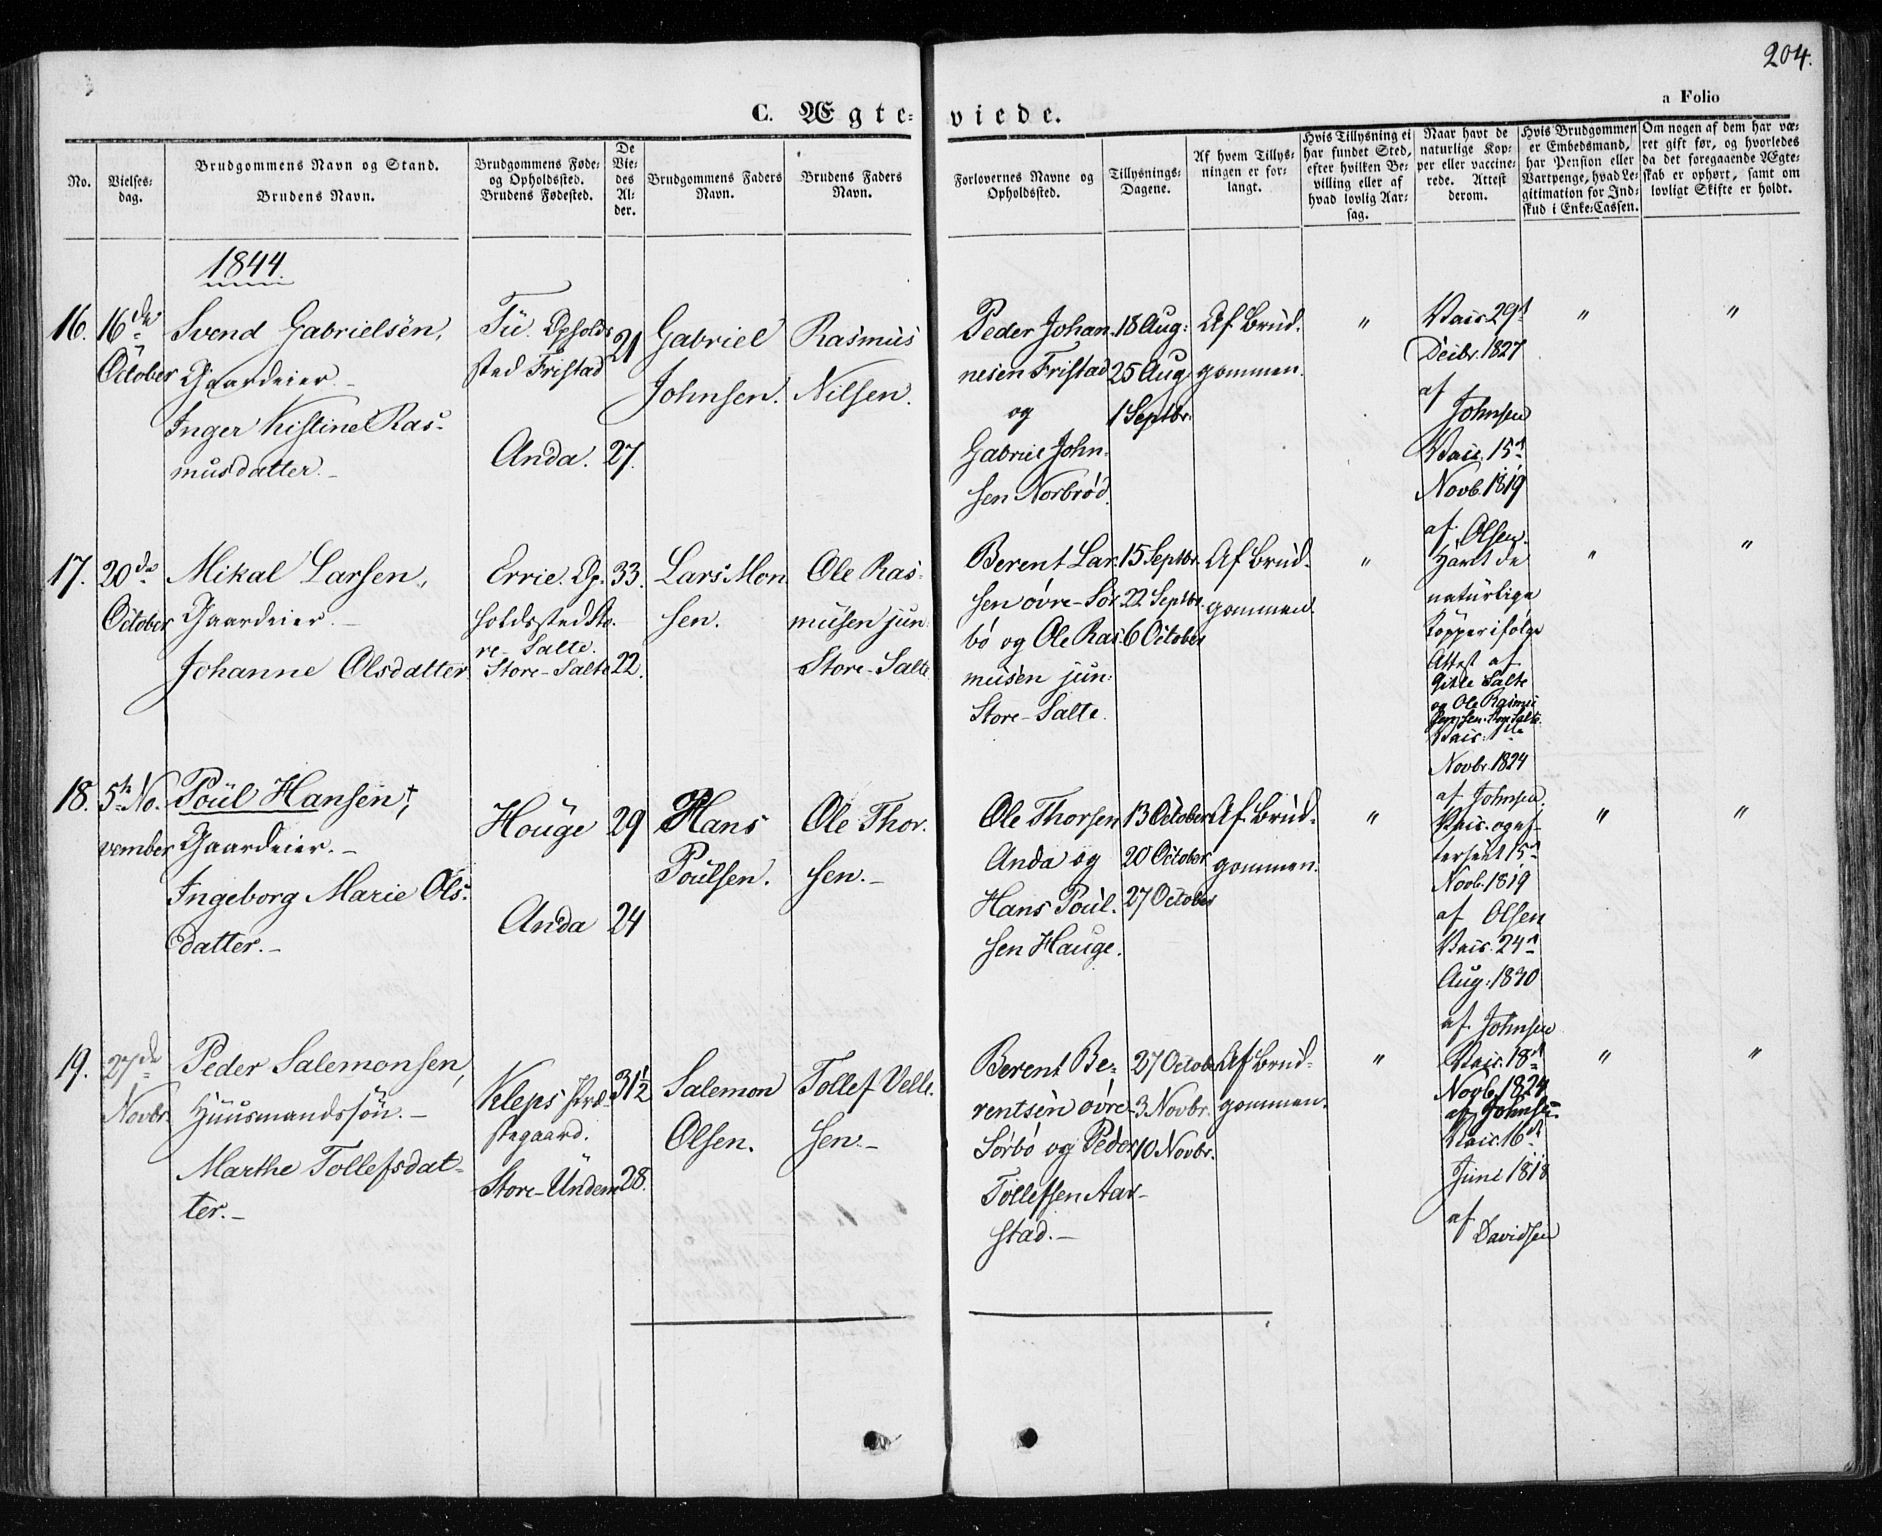 204.
a Folio
C. Ægte-
viede.
No.
Vielses-
dag.
Brudgommens Navn og Stand.
Brudens Navn.
Brudgommens Føde-
og Opholdssted.
Brudens Fødested.
De
Vie-
des
Al-
der.
Brudgommens Faders
Navn.
Brudens Faders
Navn.
Forlovernes Navne og
Opholdssted.
Tillysnings-
Dagene.
Af hvem Tillys-
ningen er for-
langt.
Hvis Tillysning ei
har fundet Sted,
efter hvilken Be-
villing eller af
hvad lovlig Aar-
sag.
Naar havt de
naturlige Kop-
per eller vaccine-
rede. Attest
derom.
Hvis Brudgommen
er Embedsmand,
har Pension eller
Vartpenge, hvad Le-
gitimation for Ind-
skud i Enke-Cassen.
Om nogen af dem har væ-
ret gift før, og hvorledes
da det foregaaende Ægte-
skab er ophørt, samt om
lovligt Skifte er holdt.
1844.
16.
16de
October
Svend Gabrielsen,
Gaardeier.-
Inger Kistine Ras-
musdatter.-
Tu. Opholds
sted Fristad
Anda.
21
27.
Gabriel
Johnsen.
Rasmus
Nilsen.
Peder Johan-
nesen Fristad
og
Gabriel John-
sen Norbrød.
18 Aug:
25 Aug
1 Septbr:
Af Brud-
gommen.
"
Vaic. 29d
Decbr. 1827
af
Johnsen
Vaic. 15d
Novb. 1819
af Olsen.
"
"
17.
20de
October
Mikal Larsen,
Gaardeier.-
Johanne Olsdatter
Errie. Op-
holdssted Sto-
re-Salte.
Store-Salte
33.
22.
Lars Mon
sen.
Ole Ras-
musen jun:
Store-Salte.
Berent Lar-
sen øvre-Sør-
bø og Ole Ras-
musen jun:
Store-Salte.
15 Septbr.
22 Septbr.
6 October
Af Brud-
gommen.
"
Havt de
naturlige
Kopper ifølge
Attest af
Salte
og Ole Rasmu
Vaic. 1ste
Novbr. 1824
af Johnsen.
"
"
18.
5te No-
vember
Poul Hansen,†
Gaardeier.-
Ingeborg Marie Ols-
datter.-
Houge
Anda
29
24
Hans
Poulsen.
Ole Thor-
sen.-
Ole Thorsen
Anda og
Hans Poul-
sen Hauge.
13 October
20 October
27 October
Af Brud-
gommen.
"
Vaic. og at-
terseet 15d
Novb. 1819
af Olsen
Vaic. 24d
Aug: 1830
af Johnsen
"
"
19.
27de
Novbr.
Peder Salemonsen,
Huusmandssøn.-
Marthe Tollefsdat-
ter.-
Kleps Præ-
stegaard.
Store-Undem
31½
28.
Salemon
Olsen.
Tollef Velle-
sen.-
Berent Be-
rentsen øvre-
Sørbø og Peder
Tollefsen Aar-
stad.-
27 October
3 Novbr.
10 Novbr.
Af Brud-
gommen.
"
Vaic. 18d
Novb. 1824
af Johnsen
Vaic. 16d
Juni 1818
af
Davidsen
"
"